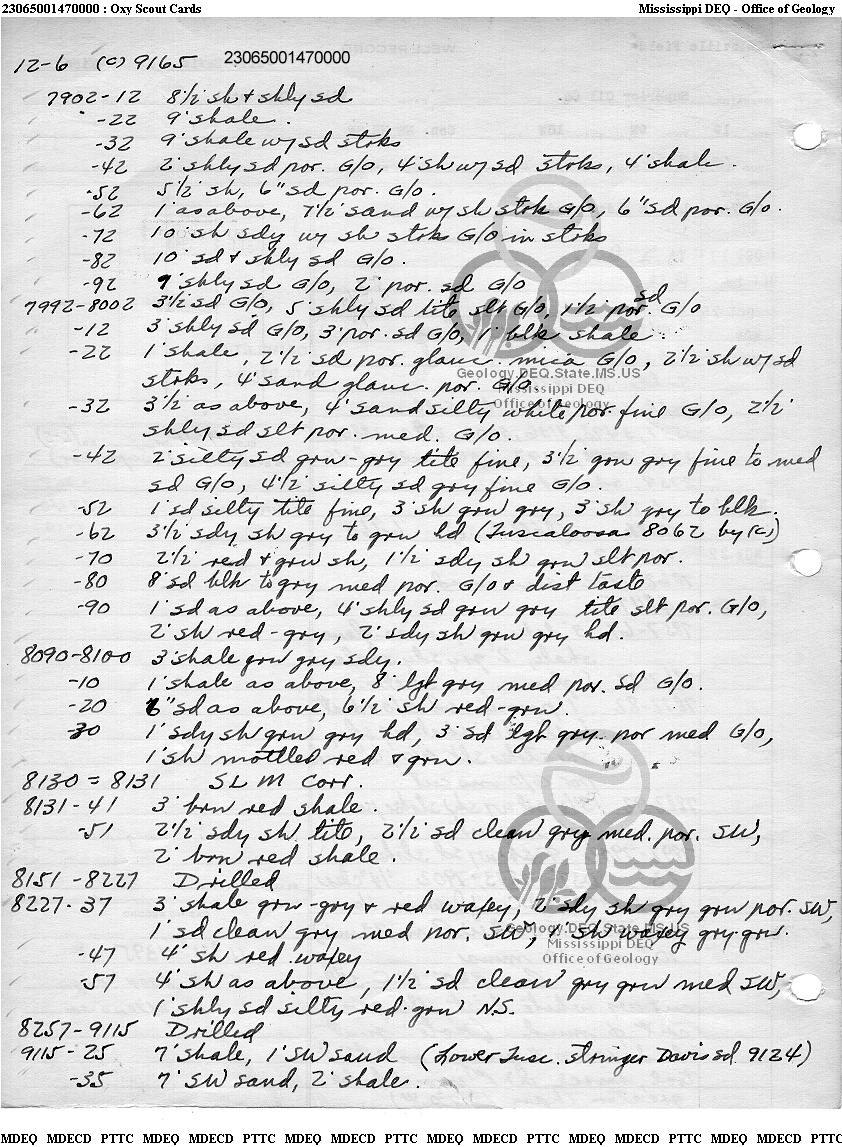 23065001470000 : Oxy Scout Cards Mississippi DEQ - Office of Geology
12-6 (c) 9165 23065001470000
7902-12 8½' sh & shly sd
-22 9' shale.
-32 9' shale w/ sd stks
-42 2' shly sd por. G/O, 4' sh w/ sd stoks, 4' shale.
-52 5½' sh, 6" sd por. G/O.
-62 1' as above, 7½' sand w/ sh stok G/O, 6" sd por. G/O.
-72 10' sh sdy w/ sh stoks G/O in stoks
-82 10' sd & shly sd G/O.
-92 9' shly sd G/O, 2' por. sd G/O
7992-8002 3½' sd G/O, 5' shly sd tite slt G/O, 1½' por. sd G/O
-12 3' shly sd G/O, 3' por. sd G/O, 1' blk shale.
-22 1' shale, 2½' sd por. glauc. mica G/O, 2½' sh w/ sd
Geology.DEQ.State.MS.US
stoks, 4' sand glauc. por. G/O.
Mississippi DEQ
Office of Geology
-32 3½' as above, 4' sand silty white por. fine G/O, 2½'
shly sd slt por. med. G/O.
-42 2' silty sd grn-gry tite fine, 3½' grn gry fine to med
sd G/O, 4½' silty sd gry fine G/O.
-52 1' sd silty tite fine, 3' sh grn gry, 3' sh gry to blk.
-62 3½' sdy sh gry to grn hd (Tuscaloosa 8062 by (c))
-70 2½' red & grn sh, 1½' sdy sh grn slt por.
-80 8' sd blk to gry med por. G/O & dist taste
-90 1' sd as above, 4' shly sd grn gry tite slt por. G/O,
2' sh red-gry, 2' sdy sh grn gry hd.
8090-8100 3' shale grn gry sdy.
-10 1' shale as above, 8' lgt gry med por. sd G/O.
-20 6" sd as above, 6½' sh red-grn.
-30 1' sdy sh grn gry hd, 3' sd lgh gry por med G/O,
1' sh mottled red & grn.
8130 = 8131 SLM Corr.
8131-41 3' brn red shale.
-51 2½' sdy sh tite, 2½' sd clean gry med. por. SW,
2' brn red shale.
8151-8227 Drilled
8227-37 3' shale grn-gry & red waxey, 2' sdy sh gry grn por. SW,
1' sd clean gry med por. SW, 1' sh waxey gry-grn.
Geology.DEQ.State.MS.US
Mississippi DEQ
Office of Geology
-47 4' sh red waxey
-57 4' sh as above, 1½' sd clean gry grn med SW,
1' shly sd silty red-grn N.S.
8257-9115 Drilled
9115-25 7' shale, 1' SW sand (Lower Tusc. stringer Davis sd. 9124)
-35 7' SW sand, 2' shale.
MDEQ MDECD PTTC MDEQ MDECD PTTC MDEQ MDECD PTTC MDEQ MDECD PTTC MDEQ MDECD PTTC MDEQ MDECD PTTC